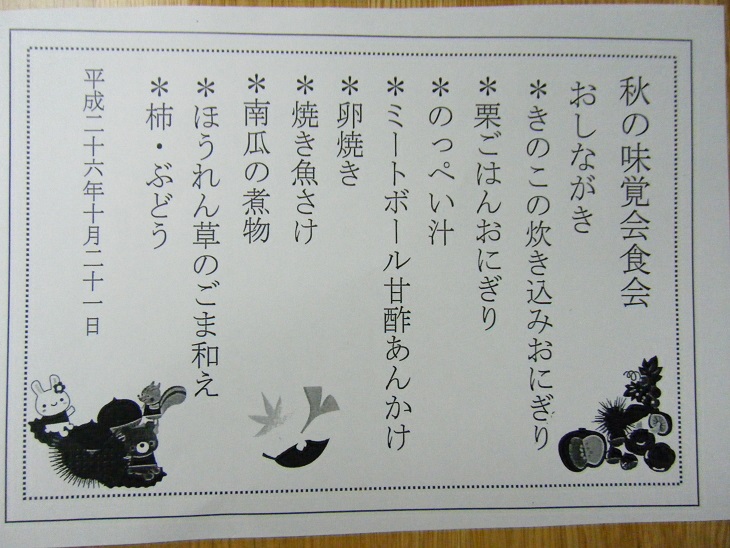 秋の味覚会食会
おしながき
＊きのこの炊き込みおにぎり
＊栗ごはんおにぎり
＊のっぺい汁
＊ミートボール甘酢あんかけ
＊卵焼き
＊焼き魚さけ
＊南瓜の煮物
＊ほうれん草のごま和え
＊柿・ぶどう
平成二十六年十月二十一日